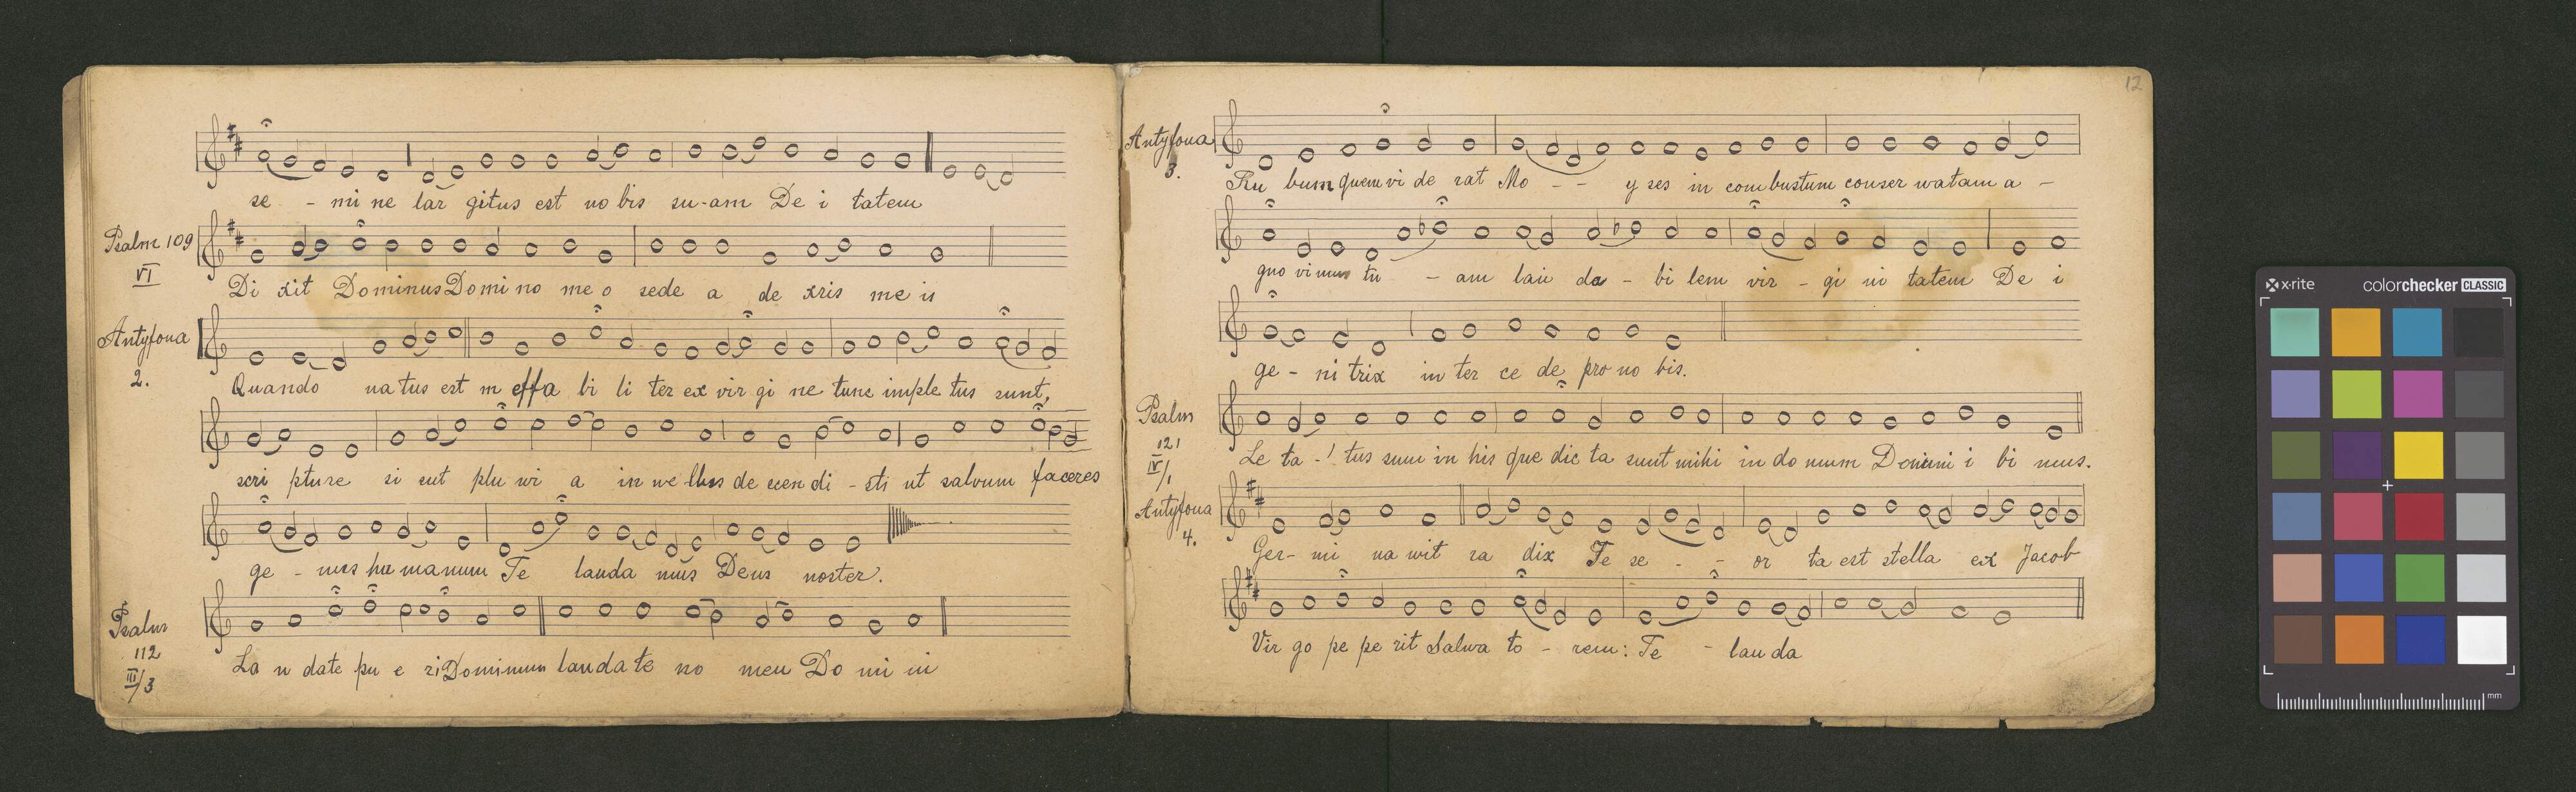 se - mi ne lar gitus est no bis su-am De i tatem
Psalm 109
VI
Di xit Dominus Domi no me o sede a de xris me is
Antyfona
2.
Quando na tus est in effa bi li ter ex vir gi ne tunc imple tus sunt,
scri pture si cut plu wi a in we llus de scen di - sti ut salvum faceres
ge - nus hu manum Te lauda mus Deus noster.
Psalm
112
III/3
La u date pu e ri Dominum lauda te no men Do mi ni
12
Antyfona
3.
Ru bum quem vi de rat Mo - - y ses in com bustum conser watam a -
gno vi mus tu - am lau da - bi lem vir - gi ni tatem De i
ge - ni trix in ter ce de pro no bis.
Psalm
121
IV/1
Le ta - ! tus sum in his que dic ta sunt mihi in do mum Domini i bi mus.
Antyfona
4.
Ger - mi na wit ra dix Te se - - or ta est stella ex Jacob
Vir go pe pe rit Salwa to - rem: Te - lau da
x-rite colorchecker CLASSIC
mm